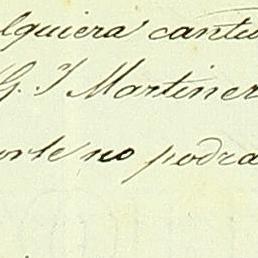 lquiera cantid
G. Y Martinez
orte no podra